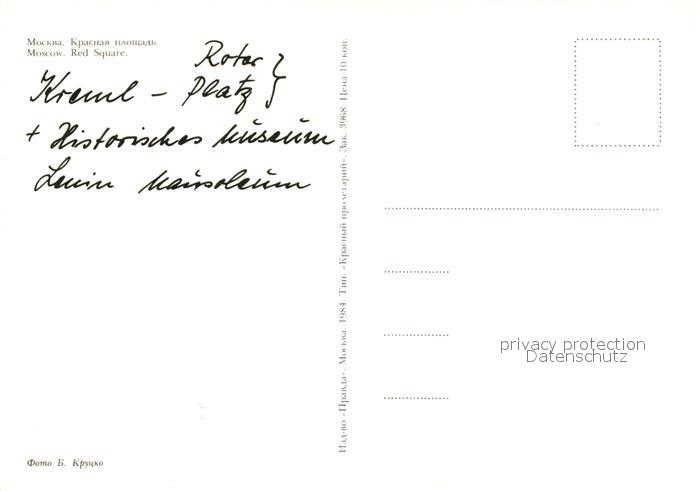 Москва. Красная площадь.
Moscow. Red Square.
Roter }
Kreml - Platz }
+ Historisches Museum
Lenin Mausoleum
Изд-во «Правда». Москва. 1984. Тип. «Красный пролетарий». Зак. 3968. Цена 10 коп.
privacy protection
Datenschutz
Фото Б. Круцко